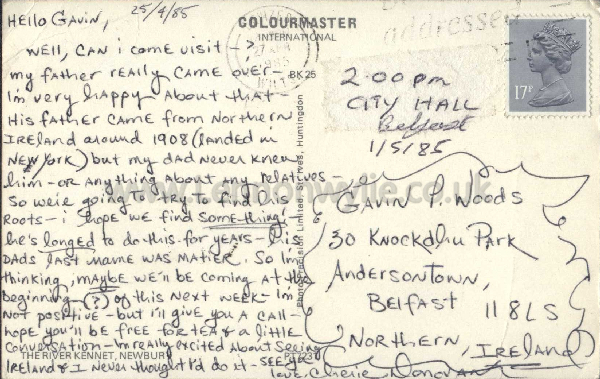 25/4/85
Hello Gavin,
Well, can i come visit →?
my father really came over –
I'm very happy about that –
His father came from Northern
Ireland around 1908 (landed in
New York) but my dad never knew
him – or anything about any relatives
So we're going to try to find his
Roots – i hope we find something!
he's longed to do this for years – his
Dads last name was Matier. So I'm
thinking, maybe we'll be coming at the
beginning – (?) of this next week – I'm
not positive – but i'll give you a call –
hope you'll be free for tea & a little
conversation – I'm really excited about seeing
Ireland & I never thought I'd do it – see ya
love, Cherie Donovan
THE RIVER KENNET, NEWBURY
PT7237
COLOURMASTER
INTERNATIONAL
BK 25
Photo Precision Limited, St. Ives, Huntingdon
addressed
1985
17P
2:00 pm
City Hall
Belfast
1/5/85
Gavin P. Woods
30 Knockdhu Park
Andersontown,
Belfast
11 8LS
Northern, Ireland